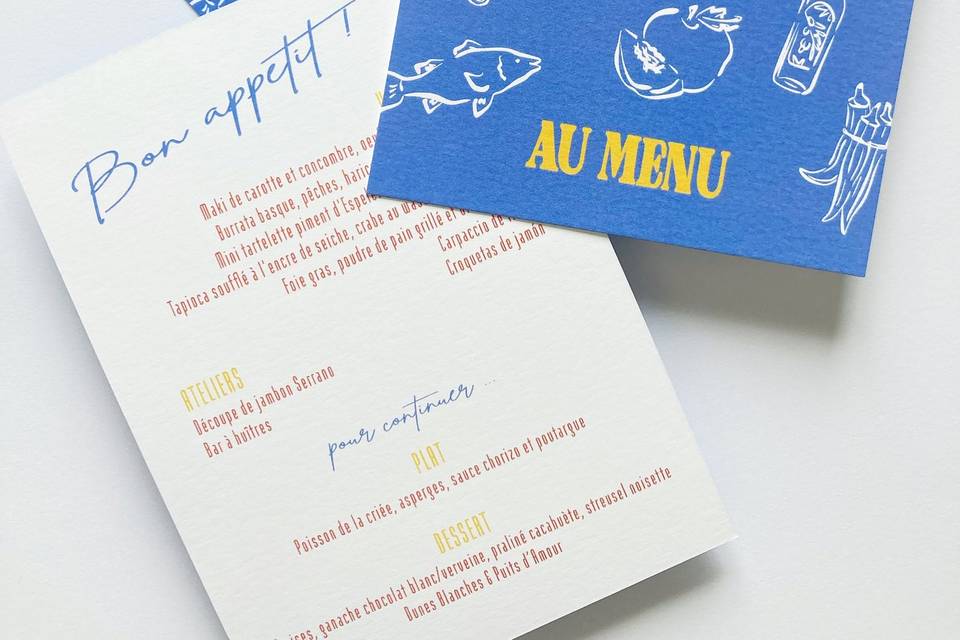 Bon appétit !
Maki de carotte et concombre,
Burrata basque, pêches,
Mini tartelette piment d'Espe
Tapioca soufflé à l'encre de seiche, crabe au
Foie gras, poudre de pain grillé et
Carpaccio de
Croquetas de jamón
ATELIERS
Découpe de jambon Serrano
Bar à huîtres
pour continuer ...
PLAT
Poisson de la criée, asperges, sauce chorizo et poutargue
DESSERT
ganache chocolat blanc/verveine, praliné cacahuète, streusel noisette
Dunes Blanches & Puits d'Amour
AU MENU